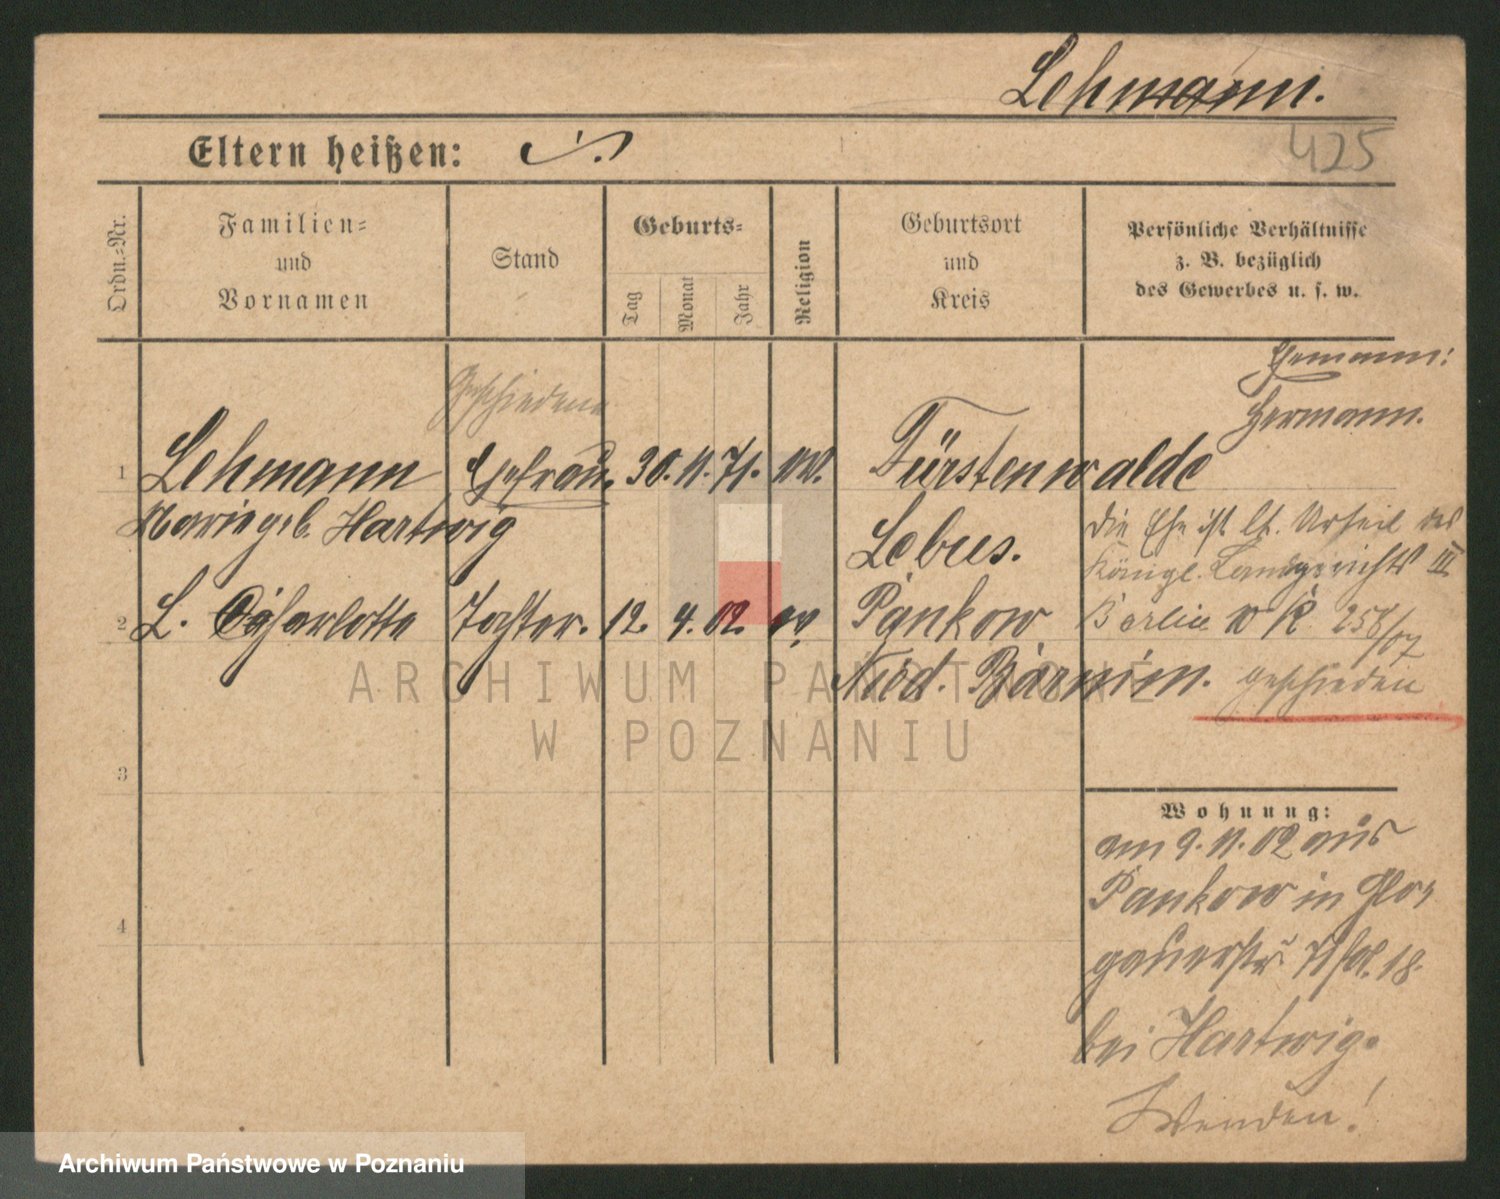 Lehmann.
425
Eltern heißen:
Ordn.=Nr.
Familien=
und
Vornamen
Stand
Geburts=
Tag
Monat
Jahr
Religion
Geburtsort
und
Kreis
Persönliche Verhältnisse
z. B. bezüglich
des Gewerbes u. s. w.
Ehemann:
Hermann.
Geschiedene
1 Lehmann Ehefrau. 30. 11. 71. ev. Fürstenwalde
Marie geb. Hartwig
Lebus.
Die Ehe ist lt. Urteil des
Königl. Landgerichts III
Berlin 258/07
geschieden
2 L. Charlotte Tochter. 12. 4. 02. ev. Pankow
Nied. Barnim.
3
4
Wohnung:
am 9. 11. 02 aus
Pankow in Glo-
gauerstr 18.
bei Hartwig.
Wenden!
ARCHIWUM PAŃSTWOWE
W POZNANIU
Archiwum Państwowe w Poznaniu